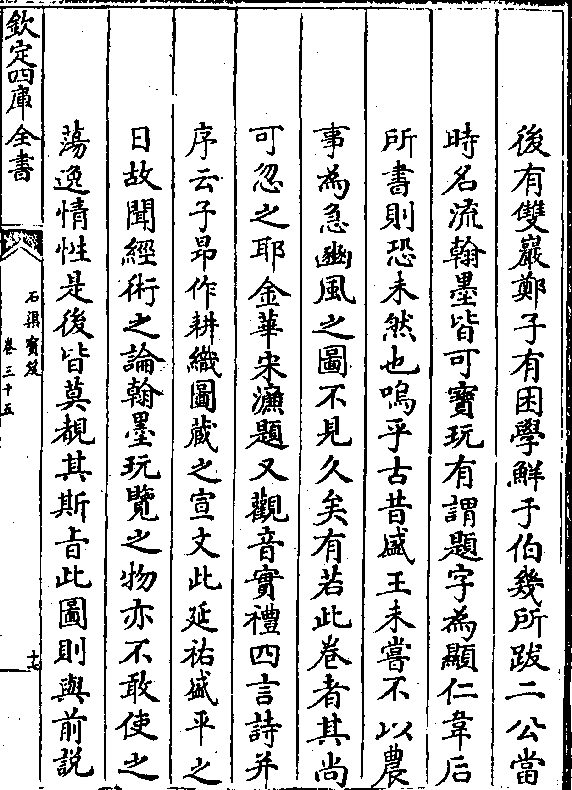 後有雙巖鄭子有困學鮮于伯幾所跋二公當
時名流翰墨皆可寶玩有謂題字為顯仁韋后
所書則恐未然也嗚乎古昔盛王未嘗不以農
事為急豳風之圖不見久矣有若此卷者其尚
可忽之耶金華宋濂題又觀音實禮四言詩并
序云子昻作耕織圖藏之宣文此延祐盛平之
日故聞經術之論翰墨玩覽之物亦不敢使之
蕩逸情性是後皆莫覩其斯旨此圖則與前說
欽定四庫全書
石渠寶笈
卷三十五
十七